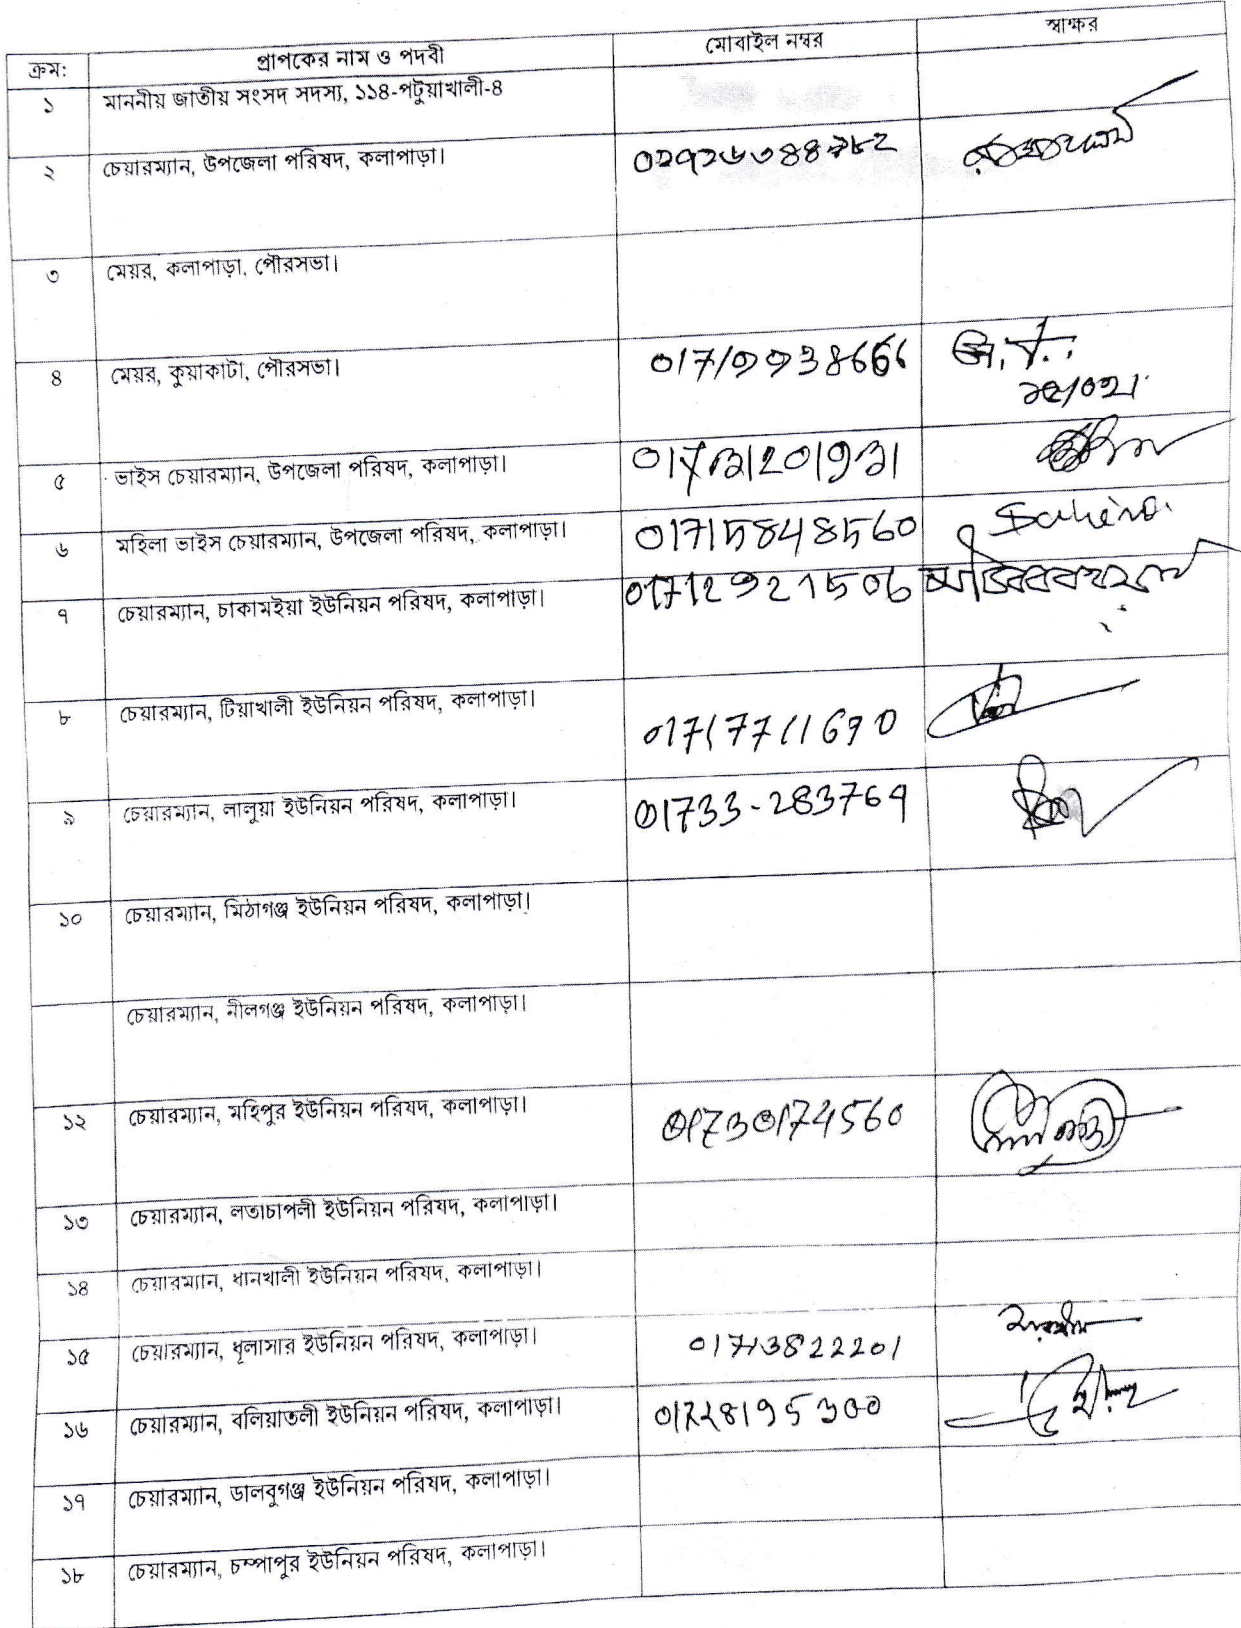 ক্রম: প্রাপকের নাম ও পদবী মোবাইল নম্বর স্বাক্ষর
১ মাননীয় জাতীয় সংসদ সদস্য, ১১৪-পটুয়াখালী-৪
২ চেয়ারম্যান, উপজেলা পরিষদ, কলাপাড়া।
৩ মেয়র, কলাপাড়া, পৌরসভা।
৪ মেয়র, কুয়াকাটা, পৌরসভা।
৫ ভাইস চেয়ারম্যান, উপজেলা পরিষদ, কলাপাড়া।
৬ মহিলা ভাইস চেয়ারম্যান, উপজেলা পরিষদ, কলাপাড়া। 01715848560
৭ চেয়ারম্যান, চাকামইয়া ইউনিয়ন পরিষদ, কলাপাড়া। 01712921506
৮ চেয়ারম্যান, টিয়াখালী ইউনিয়ন পরিষদ, কলাপাড়া। 01717711690
৯ চেয়ারম্যান, লালুয়া ইউনিয়ন পরিষদ, কলাপাড়া। 01733-283769
১০ চেয়ারম্যান, মিঠাগঞ্জ ইউনিয়ন পরিষদ, কলাপাড়া।
চেয়ারম্যান, নীলগঞ্জ ইউনিয়ন পরিষদ, কলাপাড়া।
১২ চেয়ারম্যান, মহিপুর ইউনিয়ন পরিষদ, কলাপাড়া। 01730174560
১৩ চেয়ারম্যান, লতাচাপলী ইউনিয়ন পরিষদ, কলাপাড়া।
১৪ চেয়ারম্যান, ধানখালী ইউনিয়ন পরিষদ, কলাপাড়া।
১৫ চেয়ারম্যান, ধূলাসার ইউনিয়ন পরিষদ, কলাপাড়া। 01713822201
১৬ চেয়ারম্যান, বলিয়াতলী ইউনিয়ন পরিষদ, কলাপাড়া। 01728195300
১৭ চেয়ারম্যান, ডালবুগঞ্জ ইউনিয়ন পরিষদ, কলাপাড়া।
১৮ চেয়ারম্যান, চম্পাপুর ইউনিয়ন পরিষদ, কলাপাড়া।